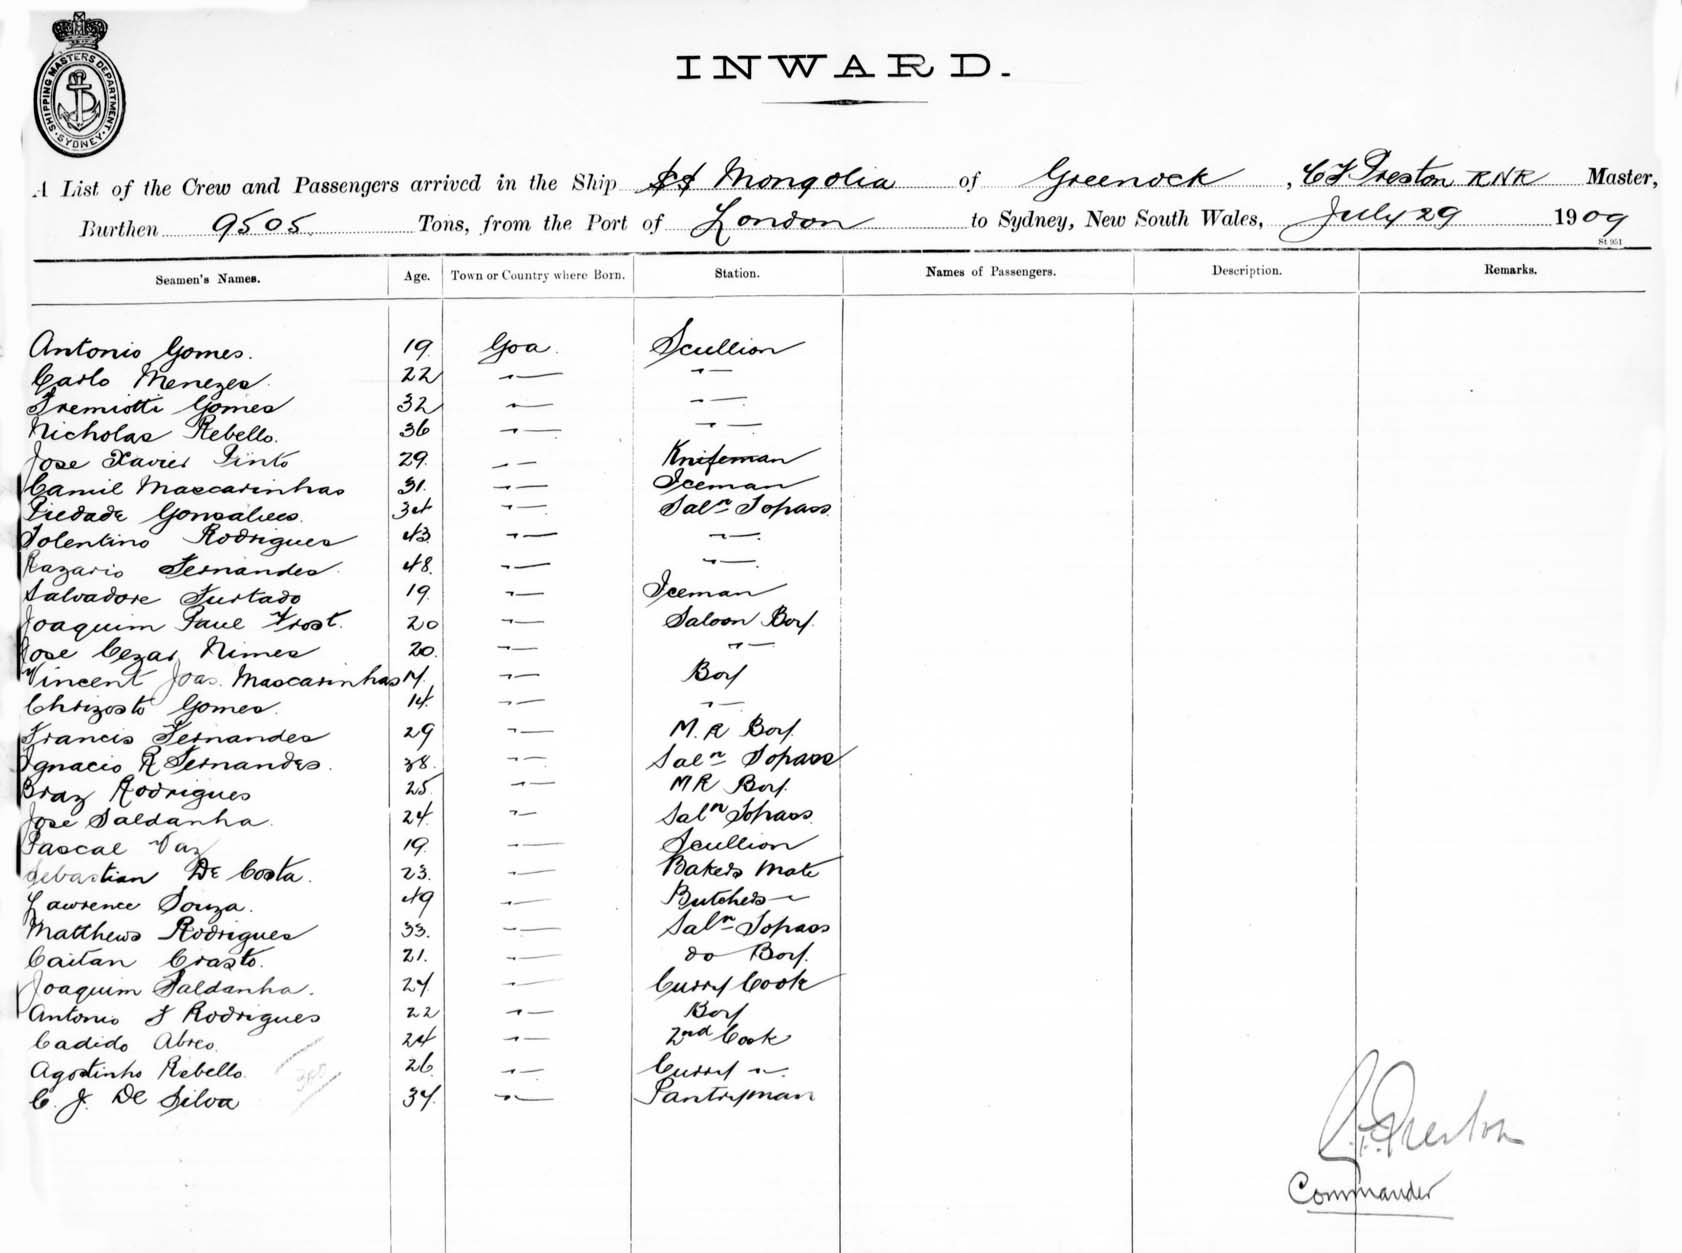 SHIPPING MASTERS DEPARTMENT. SYDNEY
INWARD.
A List of the Crew and Passengers arrived in the Ship SS Mongolia of Greenock, C F Preston RNR Master,
Burthen 9505 Tons, from the Port of London to Sydney, New South Wales, July 29 1909
St 951
Seamen's Names. Age. Town or Country where Born. Station. Names of Passengers. Description. Remarks.
Antonio Gomes. 19. Goa. Scullion
Carlo Menezes. 22 " — " —
Fremiotti Gomes 32 " — " —
Nicholas Rebello. 36 " — " —
Jose Xavier Pinto 29. " — Knifeman
Camil Mascarinhas 31. " — Iceman
Piedade Gonsalves. 34 " — Saln Topass.
Tolentino Rodrigues 43 " — " —
Razario Fernandes. 48. " — " —
Salvadore Furtado 19. " — Iceman
Joaquim Paul Frost. 20 " — Saloon Boy.
Jose Cezar Nimes 20. " — " —
Vincent Joas. Mascarinhas 17. " — Boy
Chrizosto Gomes. 14. " — " —
Francis Fernandes 29 " — M.R Boy.
Ignacio R Fernandes. 38. " — Saln Topass
Braz Rodrigues 25. " — MR Boy.
Jose Saldanha. 24. " — Saln Topass.
Pascal Vaz 19. " — Scullion
Sebastian De Costa. 23. " — Bakers Mate
Lawrence Souza. 49 " — Butchers "
Matthews Rodrigues 33. " — Saln Topass
Caitan Crasto. 21. " — do Boy.
Joaquim Saldanha. 24 " — Curry Cook
Antonio F Rodrigues 22 " — Boy
Cadido Abreo. 24 " — 2nd Cook
Agostinho Rebello. 26. " — Curry ".
C. J. De Silva 34. " — Pantryman
C.F. Preston
Commander